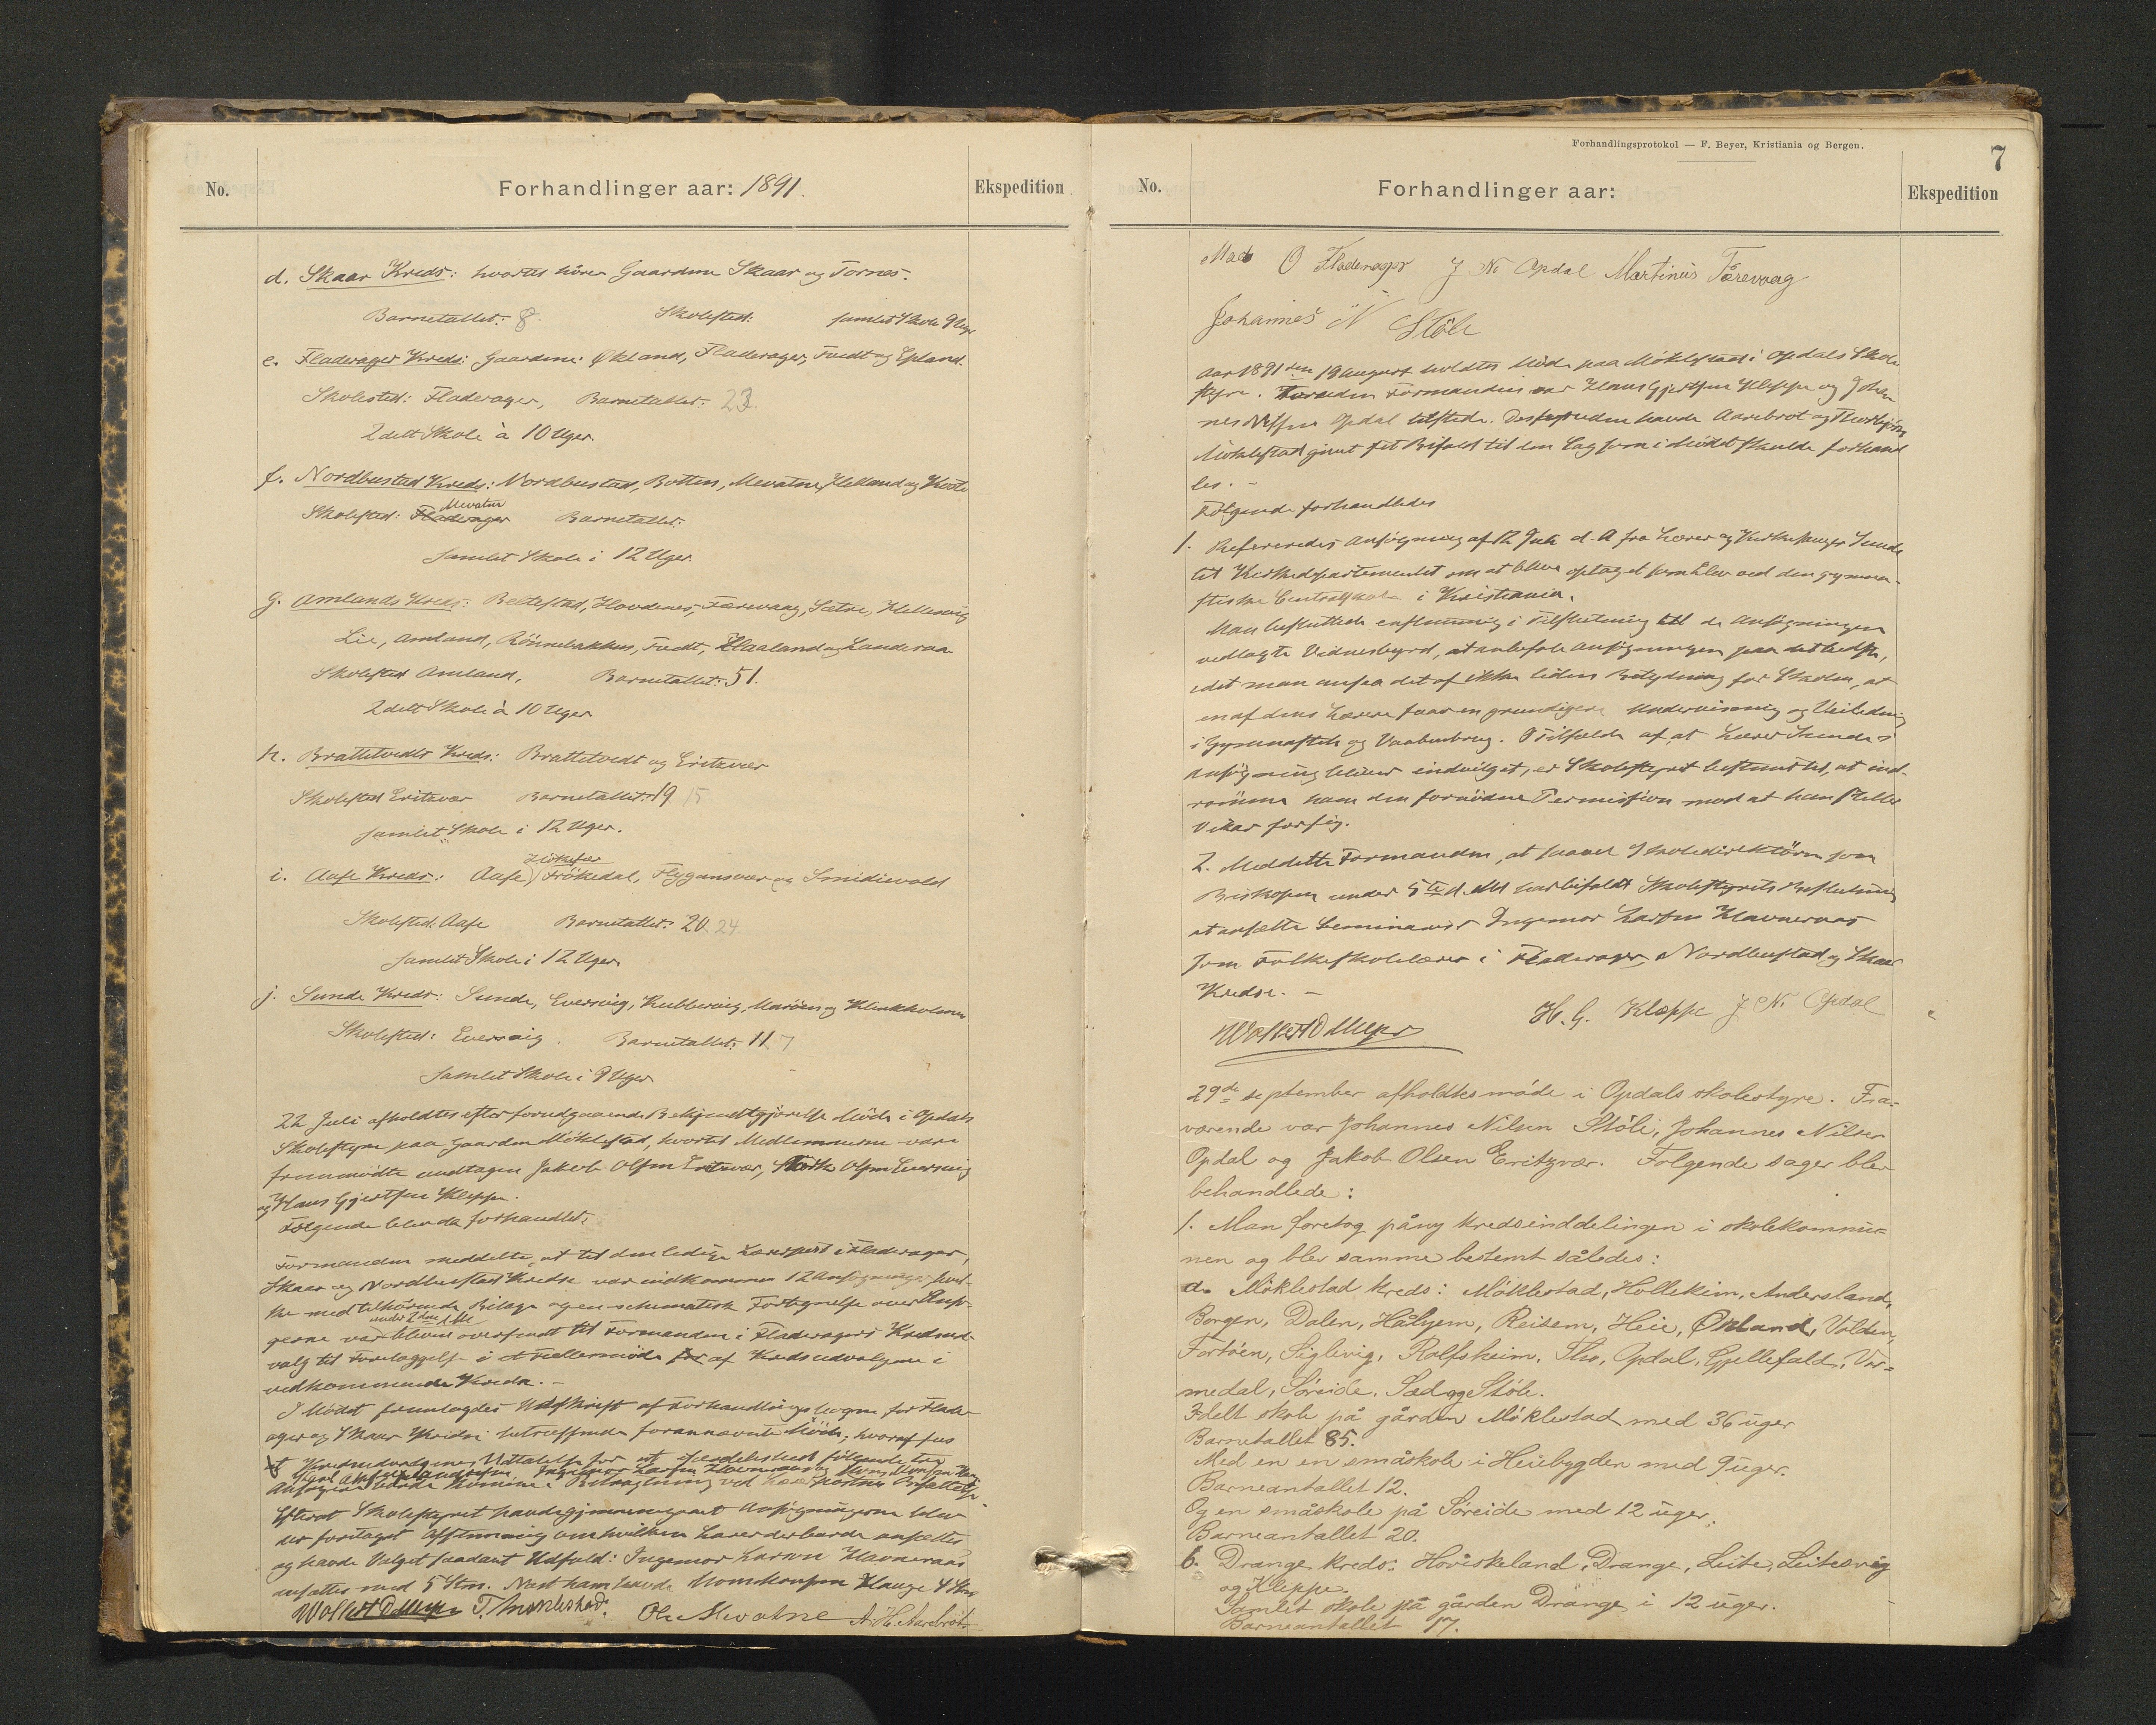 No.
Forhandlinger aar: 1891.
Ekspedition
d. Skaar Kreds: hvortil hörer Gaardene Skaar og Tornes.
Barnetallet: 8. Skolested: samlet Skole 9 Uger
e. Fladerager Kreds: Gaardene: Økland, Fladerager, Tvedt og Epland.
Skolested: Fladerager, Barnetallet: 23.
2delt Skole à 10 Uger.
f. Nordbustad Kreds: Nordbustad, Botten, Mevatne, Helland og
Mevatne
Skolested: Fladerager Barnetallet:
samlet Skole i 12 Uger.
g. Amlands Kreds: Beltestad, Hovdenes, Færevaag, Sætre, Hellesvig
Lie, Amland, Rönnebakken, Tvedt, Haaland og Landeraa
Skolested Amland, Barnetallet: 51.
2delt Skole à 10 Uger
h. Brattetvedts Kreds: Brattetvedt og Eritzvær
Skolested Eritzvær Barnetallet: 19 15
samlet Skole i 12 Uger.
i. Aase Kreds: Aase, Frökedal, Flygansvær og Smidivold
Skolested: Aase Barnetallet: 20. 24
samlet Skole i 12 Uger
j. Sunde Kreds: Sunde, Eversvig, Kubbervig, Maröen og Klinkholmen
Skolested: Eversvig. Barnetallet: 11. 7
Samlet Skole i 9 Uger
22 Juli afholdtes efter forudgaaende Bekjendtgjörelse Möde i Opdals
Skolestyre paa Gaarden Möklestad, hvortil Medlemmerne vare
fremmödte undtagen Jakob Olsen Eritzvær, Olsen Eversvig
og Hans Gjertsen Kleppe.
Fölgende blev da forhandlet:
Formanden meddelte, at til den ledige Lærerpost i Fladerager,
Skaar og Nordbustad Kredse var indkommen 12 Ansögninger, hvil-
ke med tilhörende Bilage og en schematisk Fortegnelse over Ansö-
under 2den ds
gerne var bleven oversendt til Formanden i Fladeragers Kredsud-
valg til Forelæggelse i et Fællesmöde af Kredsudvalgene i
vedkommende Kredse. -
I Mödet fremlagdes Udskrift af Forhandlingsbogen for Flade-
ager og Skaar Kredse betræffende forannævnte Möde, hvoraf saaes
Kredsudvalgenes Udtalelse for at fölgende tre
Ansögere burde komme i Betragtning ved Ansættelse.
Efterat Skolestyret havde gjennemgaaet Ansögningerne blev
der foretaget Afstemning om hvilken Lærer der burde ansættes
og havde Valget saadant Udfald: Ingemor Larsen Havneraas
ansattes med 5 Stm. Næst ham havde Monskonsen Hauge 4 Stm.
T. Möklestad. Ole Mevatne A. H. Aarebrot.
Forhandlingsprotokol — F. Beyer, Kristiania og Bergen.
7
No.
Forhandlinger aar:
Ekspedition
Mads O Fladerager J N Opdal Martinus Færevaag
Johannes N Stöle
Aar 1891 den 19 August holdtes Möde paa Möklestad i Opdals Skole
styre. Foruden Formanden var Hans Gjertsen Kleppe og Johan
nes Nilsen Opdal tilstede. Desforuden havde Aarebrot og
Möklestad givet sit Bifald til den Sag som i Mödet skulde forhand
les. -
Fölgende forhandledes
1. Refereredes Ansögning af 12 Juli d. A fra Lærer og Kirkesanger Sunde
til Kirkedepartementet om at blive optaget som Elev ved den gymna-
stiske Centralskole i Kristiania.
Man besluttede enstemmig i Tilslutning til de Ansögningen
vedlagte Vidnesbyrd, at anbefale Ansögningen paa det bedste,
idet man ansaa det af ikke liden Betydning for Skolen, at
en af dens Lærere faar en grundigere Undervisning og Veiledning
i Gymnastik og Vaabenbrug. I Tilfælde af at Lærer Sundes
Ansögning bliver indvilget, er Skolestyret bestemt til, at ind-
römme ham den fornödne Permission mod at han stiller
Vikar for sig.
2. Meddelte Formanden, at saavel Skoledirektören som
Biskopen under 5te d. M. har bifaldt Skolestyrets Beslutning
at ansætte Seminarist Ingemor Larsen Havneraas
som Folkeskolelærer i Fladerager, Nordbustad og Skaar
Kredse. -
H. G. Kleppe J N. Opdal
29de september afholdtes møde i Opdals skolestyre. Fra-
værende var Johannes Nilsen Støle, Johannes Nilsen
Opdal og Jakob Olsen Eritzvær. Følgende sager blev
behandlede:
1. Man foretog påny kredsinddelingen i skolekommu-
nen og blev samme bestemt således:
a. Møklestad kreds: Møklestad, Hollekim, Andersland,
Borgen, Dalen, Hålyem, Reisem, Heie, Økland, Volden,
Fortøen, Siglevig, Rolfsheim, Tho, Opdal, Gjellefald, Vor-
medal, Søreide, Sæd og Støle.
3delt skole på gården Møklestad med 36 uger
Barnetallet 85.
Med en en småskole i Heiebygden med 9 uger.
Barneantallet 12.
Og en småskole på Søreide med 12 uger.
Barneantallet 20.
b. Drange kreds: Hoviskeland, Drange, Leite, Leitesvig
og Kleppe.
Samlet skole på gården Drange i 12 uger.
Barneantallet 17.